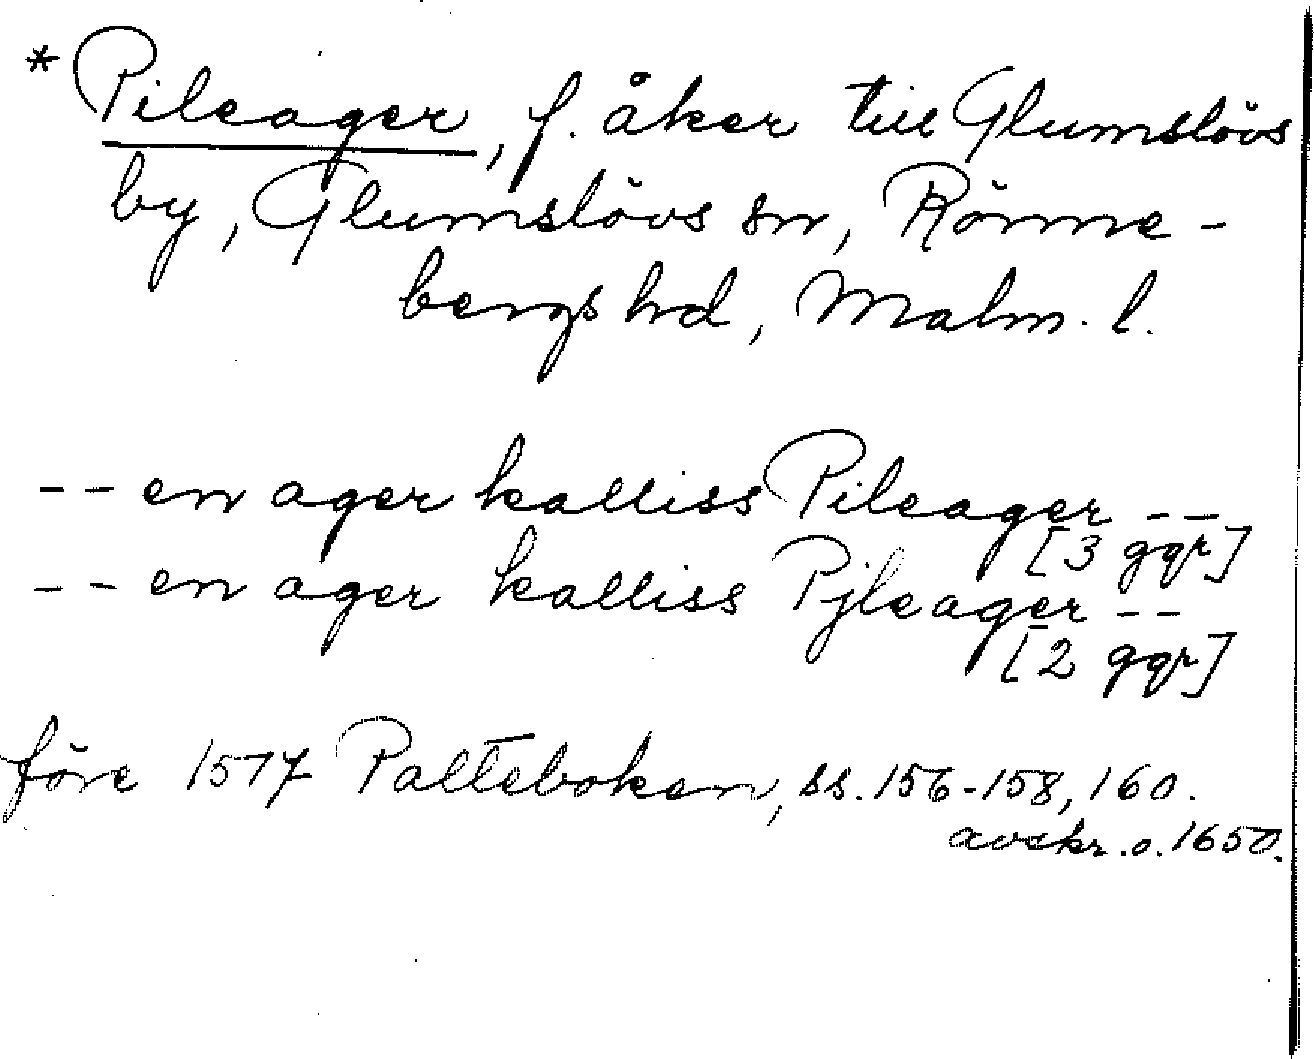 * Pileager, f. åker till Glumslövs
by, Glumslövs sn, Rönne-
bergs hd, Malm. l.
-- en ager kalliss Pileager --
[3 ggr]
-- en ager kalliss Pjleager --
[2 ggr]
före 1577 Palteboken, ss. 156-158, 160.
avskr. o. 1650.